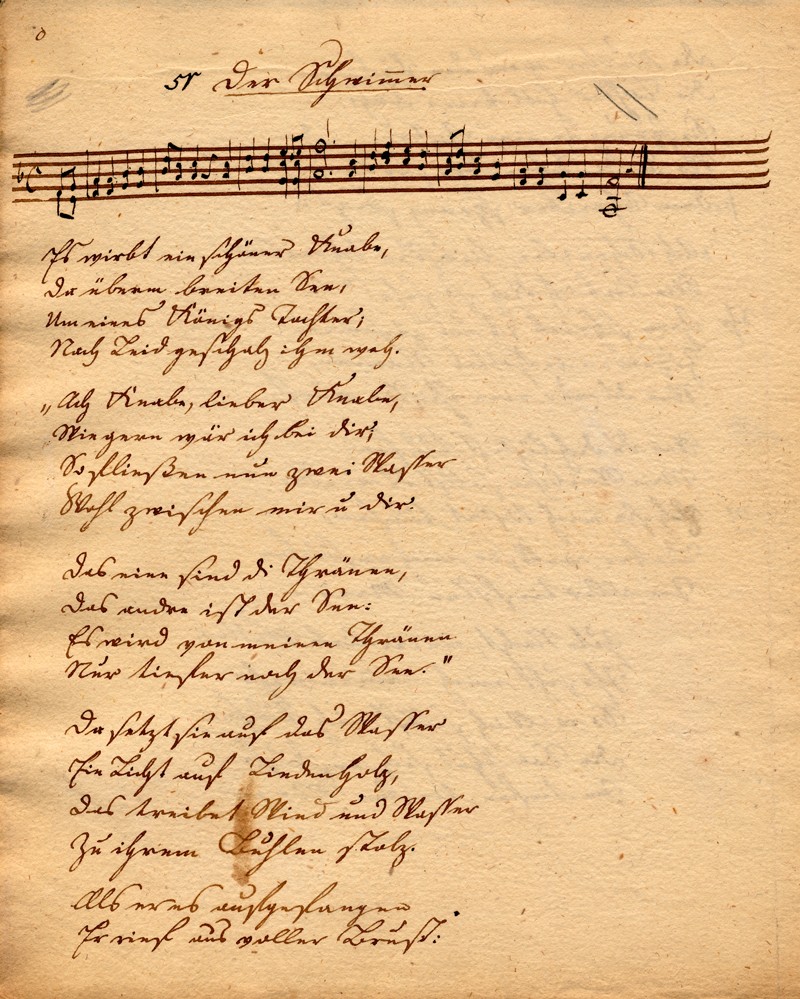 51 Der Schwimmer
Es wirbt ein schöner Knabe,
Da überm breiten See,
Um eines Königs Tochter;
Nach Leid geschah ihm weh.
„Ach Knabe, lieber Knabe,
Wie gern wär ich bei dir;
So fließen nun zwei Wasser
Wohl zwischen mir u dir.
Das eine sind di Thränen,
Das andre ist der See:
Es wird von meinen Thränen
Nur tiefer noch der See."
Da setzt sie auf das Wasser
Ein Licht auf Lindenholz,
Das treibet Wind und Wasser
Zu ihrem Buhlen stolz.
Als er es aufgefangen
Er rief aus voller Brust: